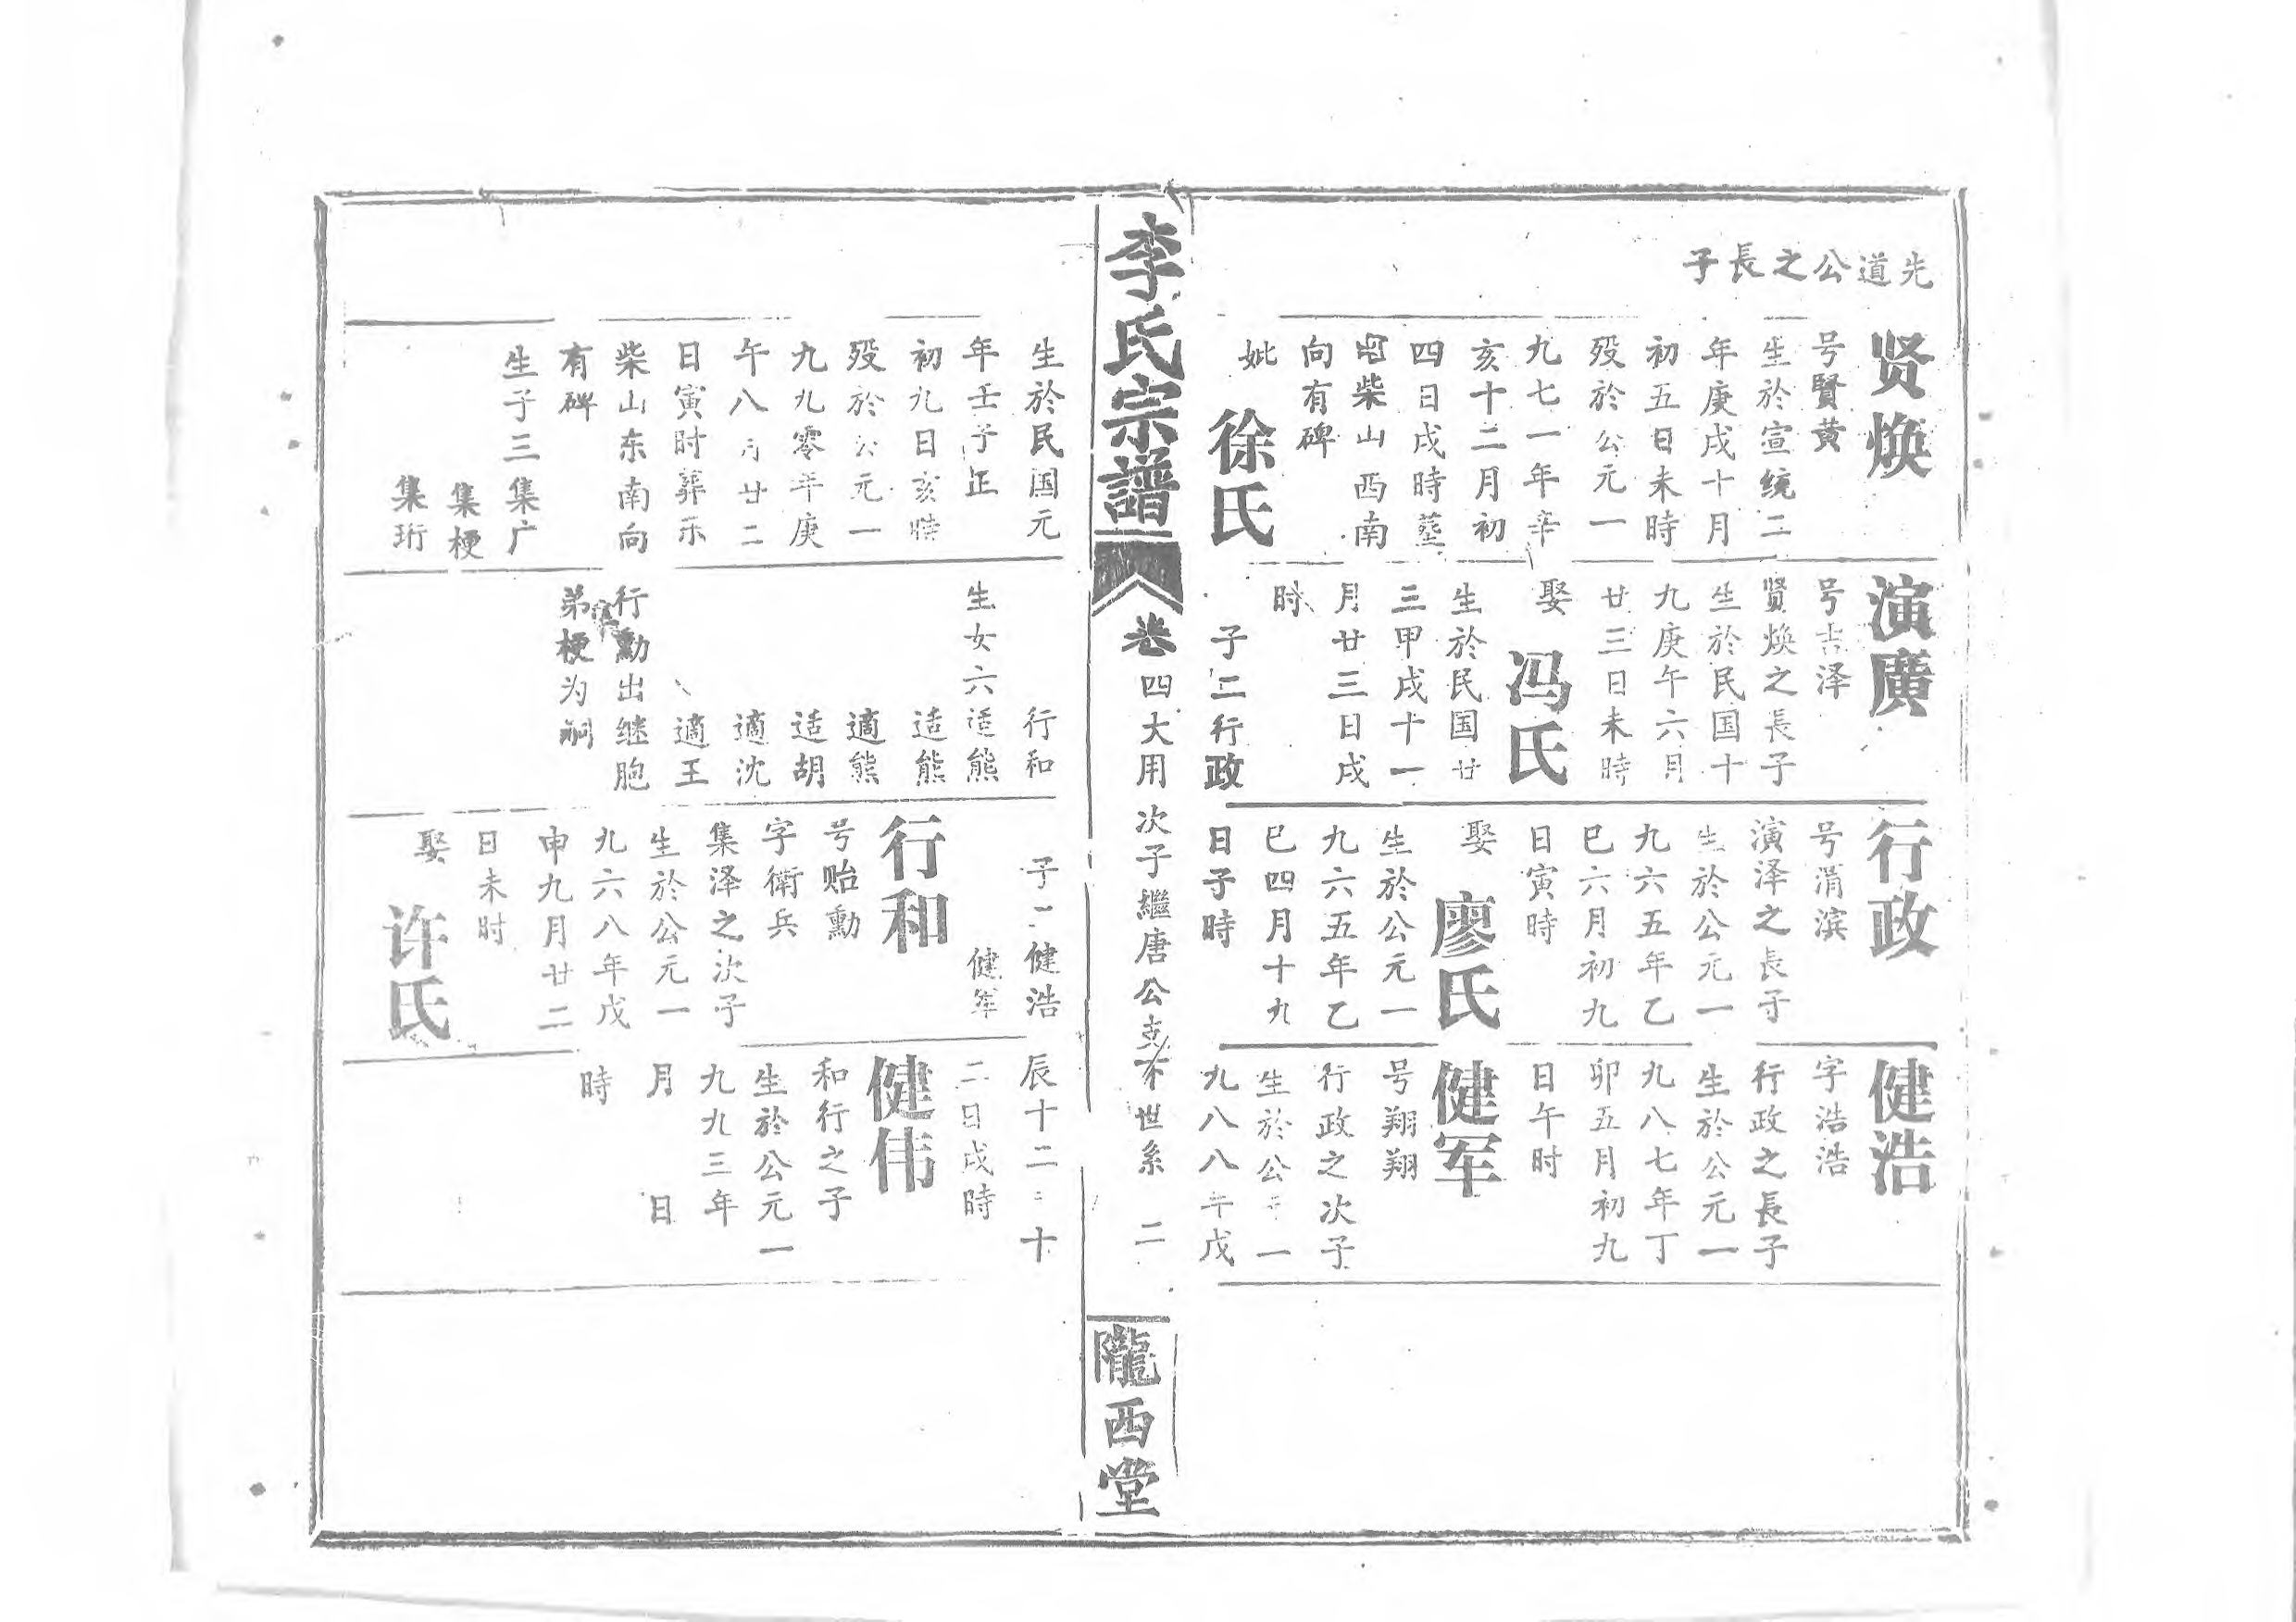 先道公之長子
贤焕
号賢黄
生於宣统二
年庚戌十月
初五日未時
殁於公元一
九七一年辛
亥十二月初
四日戌時塟
柴山西南
向有碑
妣
徐氏
生於民国元
年壬子正
初九日亥時
殁於公元一
九九零年庚
午八月廿二
日寅时葬乐
柴山东南向
有碑
生子三集广
集梗
集珩
演廣
号吉泽
贤焕之長子
生於民国十
九庚午六月
廿三日未時
娶
冯氏
生於民国廿
三甲戌十一
月廿三日戌
时
子二行政
行和
生女六适熊
适熊
適熊
适胡
適沈
適王
行勳出继胞
弟梗为嗣
行政
号渭滨
演泽之長子
生於公元一
九六五年乙
巳六月初九
日寅時
娶
廖氏
生於公元一
九六五年乙
巳四月十九
日子時
子二健浩
健军
行和
号贻勳
字衛兵
集泽之次子
生於公元一
九六八年戊
申九月廿二
日未时
娶
许氏
健浩
字浩浩
行政之長子
生於公元一
九八七年丁
卯五月初九
日午时
健军
号翔翔
行政之次子
生於公元一
九八八年戊
辰十二二十
二日戌時
健伟
和行之子
生於公元一
九九三年
月 日
時
李氏宗譜
卷四大用次子繼唐公支下世系 二
隴西堂